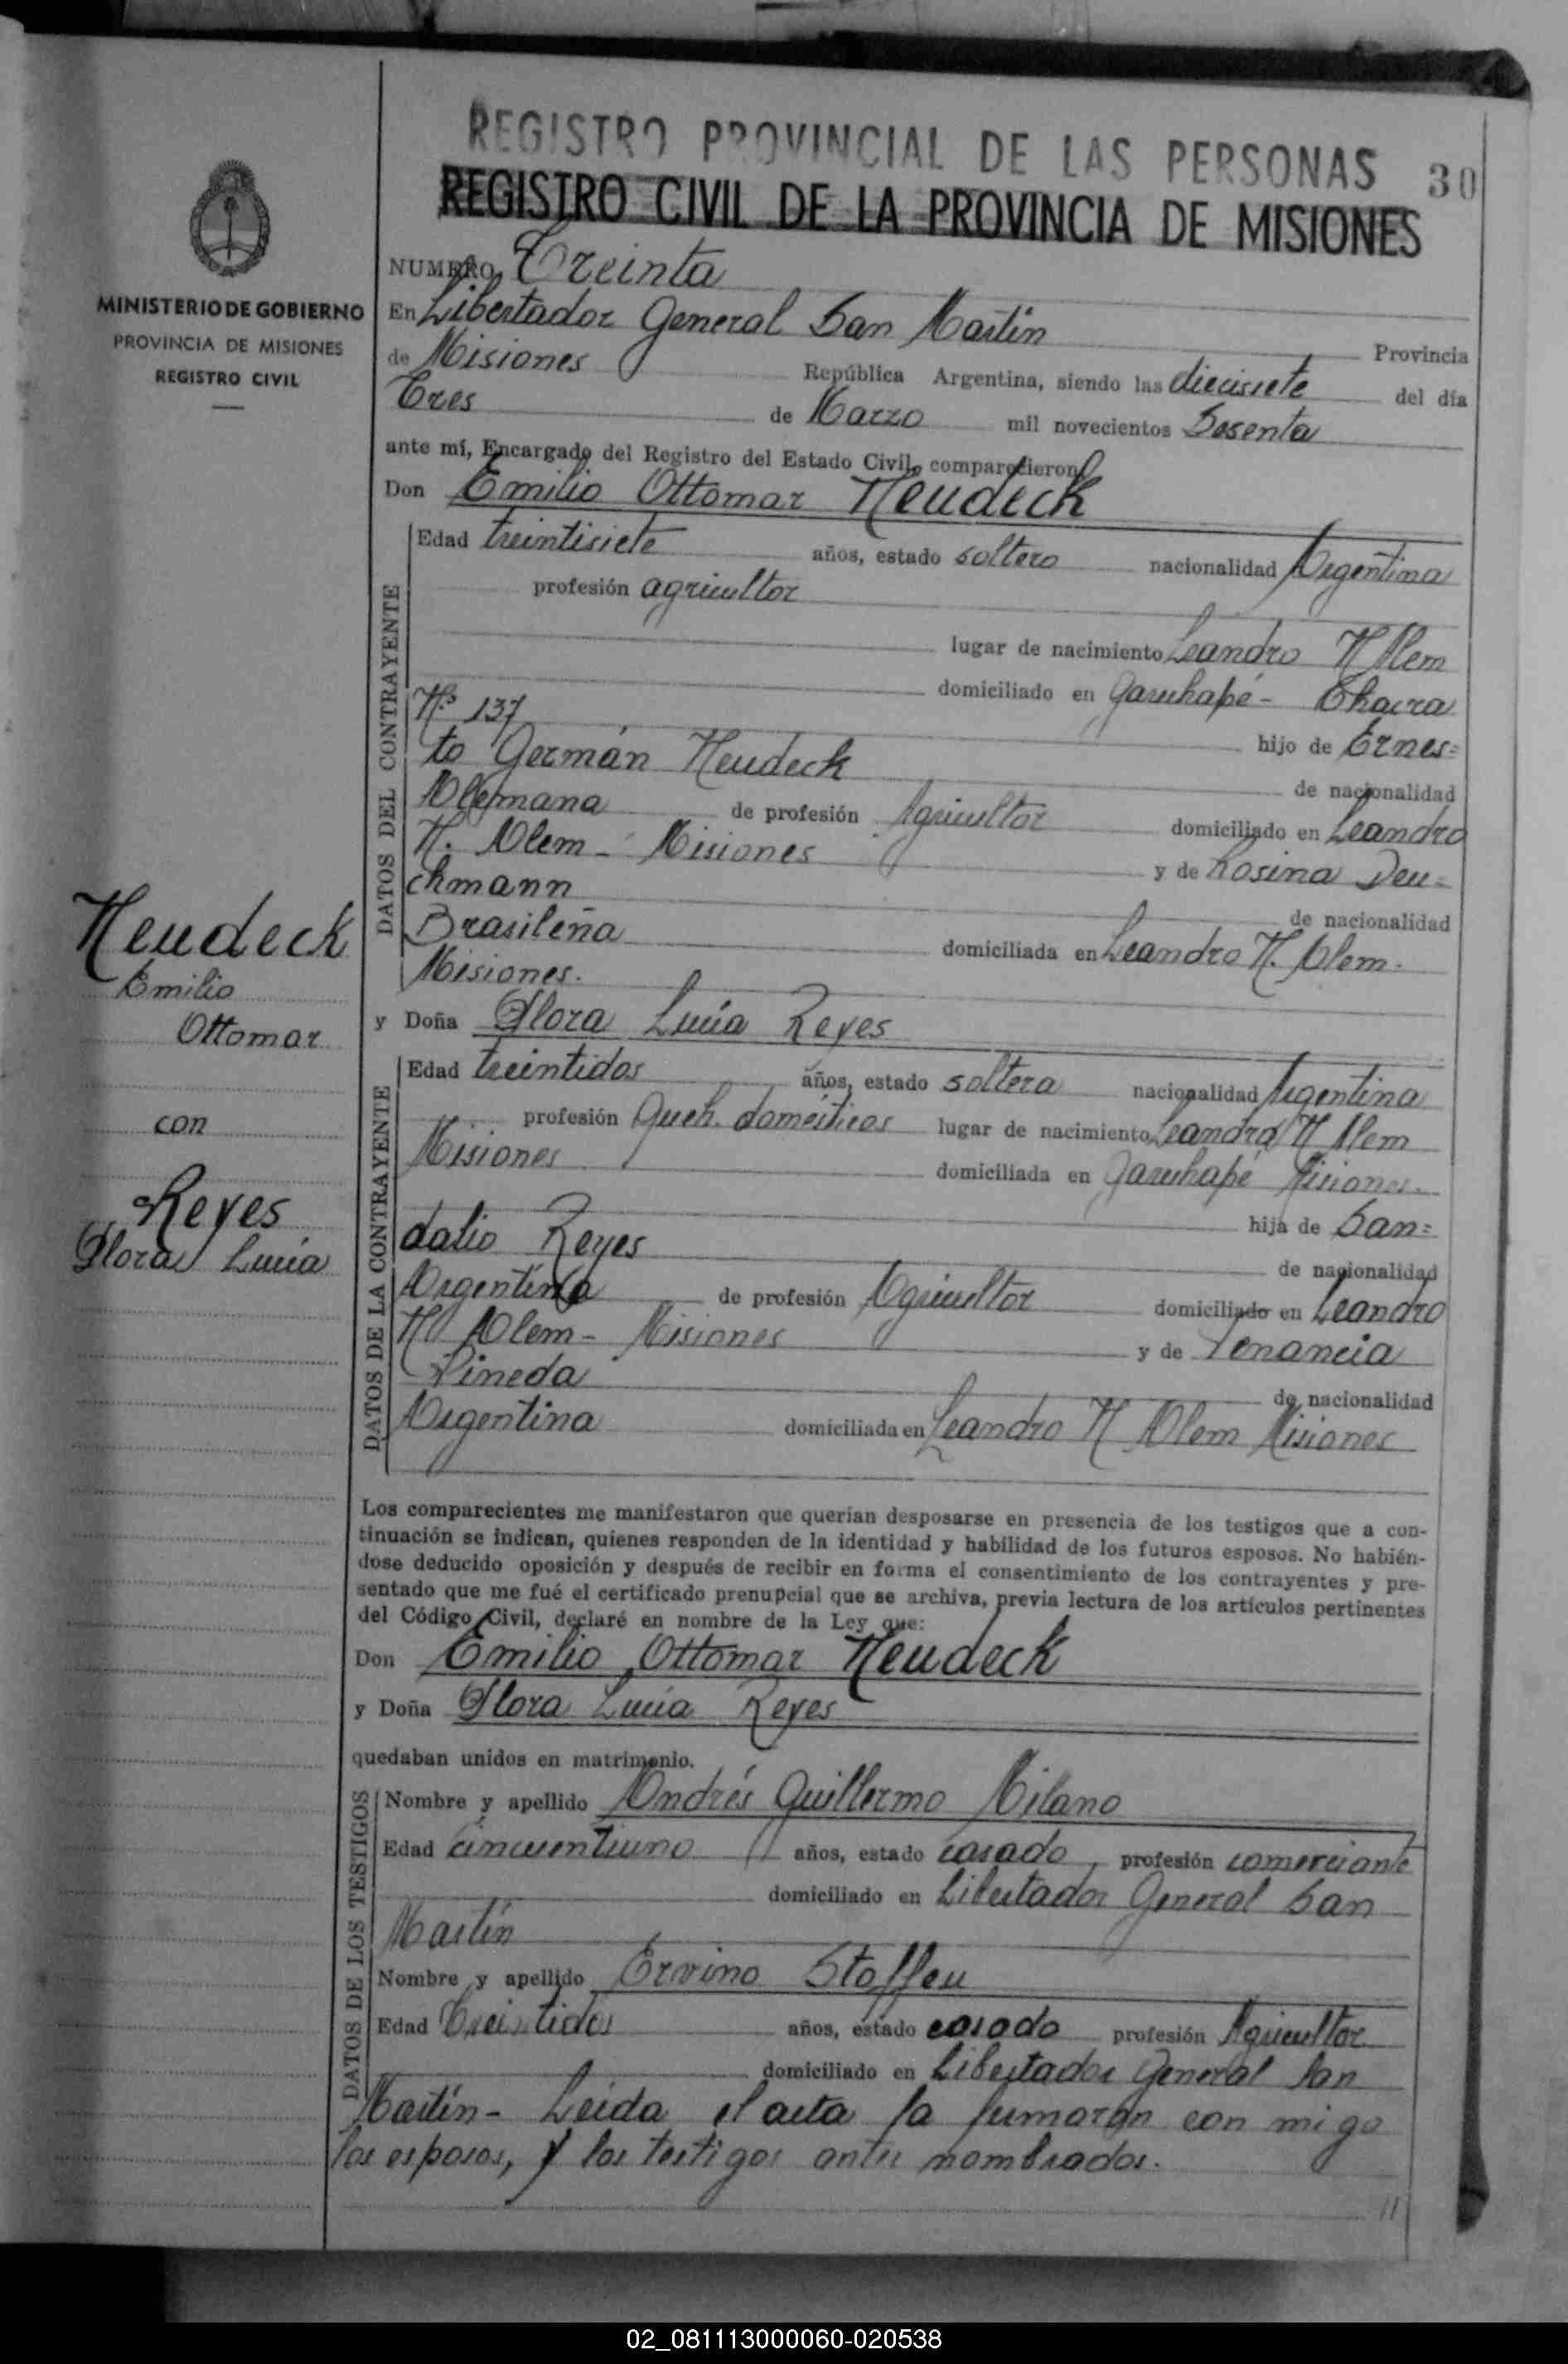 REGISTRO PROVINCIAL DE LAS PERSONAS 30
REGISTRO CIVIL DE LA PROVINCIA DE MISIONES
MINISTERIO DE GOBIERNO
PROVINCIA DE MISIONES
REGISTRO CIVIL
NUMERO Treinta
En Libertador General San Martín Provincia
de Misiones República Argentina, siendo las diecisiete del día
Tres de Marzo mil novecientos Sesenta
ante mí, Encargado del Registro del Estado Civil, comparecieron
Don Emilio Ottomar Neudeck
DATOS DEL CONTRAYENTE
Edad treintisiete años, estado soltero nacionalidad Argentina
profesión agricultor
lugar de nacimiento Leandro N Alem
domiciliado en Garuhapé - Chacra
Nº 137 hijo de Ernes=
to Germán Neudeck de nacionalidad
Alemana de profesión Agricultor domiciliado en Leandro
N. Alem - Misiones y de Rosina Deu=
ckmann de nacionalidad
Brasileña domiciliada en Leandro N. Alem.
Misiones.
Neudeck
Emilio
Ottomar
con
Reyes
Flora Lucía
y Doña Flora Lucía Reyes
DATOS DE LA CONTRAYENTE
Edad treintidos años, estado soltera nacionalidad Argentina
profesión Queh. domésticos lugar de nacimiento Leandro N Alem
Misiones domiciliada en Garuhapé Misiones.
hija de San=
dalio Reyes de nacionalidad
Argentina de profesión Agricultor domiciliado en Leandro
N Alem - Misiones y de Venancia
Pineda de nacionalidad
Argentina domiciliada en Leandro N Alem Misiones
Los comparecientes me manifestaron que querían desposarse en presencia de los testigos que a con-
tinuación se indican, quienes responden de la identidad y habilidad de los futuros esposos. No habién-
dose deducido oposición y después de recibir en forma el consentimiento de los contrayentes y pre-
sentado que me fué el certificado prenupcial que se archiva, previa lectura de los artículos pertinentes
del Código Civil, declaré en nombre de la Ley que:
Don Emilio Ottomar Neudeck
y Doña Flora Lucía Reyes
quedaban unidos en matrimonio.
DATOS DE LOS TESTIGOS
Nombre y apellido Andrés Guillermo Milano
Edad cincuentiuno años, estado casado, profesión comerciante
domiciliado en Libertador General San
Martín
Nombre y apellido Ervino Stoffeu
Edad Treintidos años, estado casado profesión Agricultor
domiciliado en Libertador General San
Martín - Leida el acta la firmaron con migo
los esposos, y los testigos antes nombrados.
02_081113000060-020538